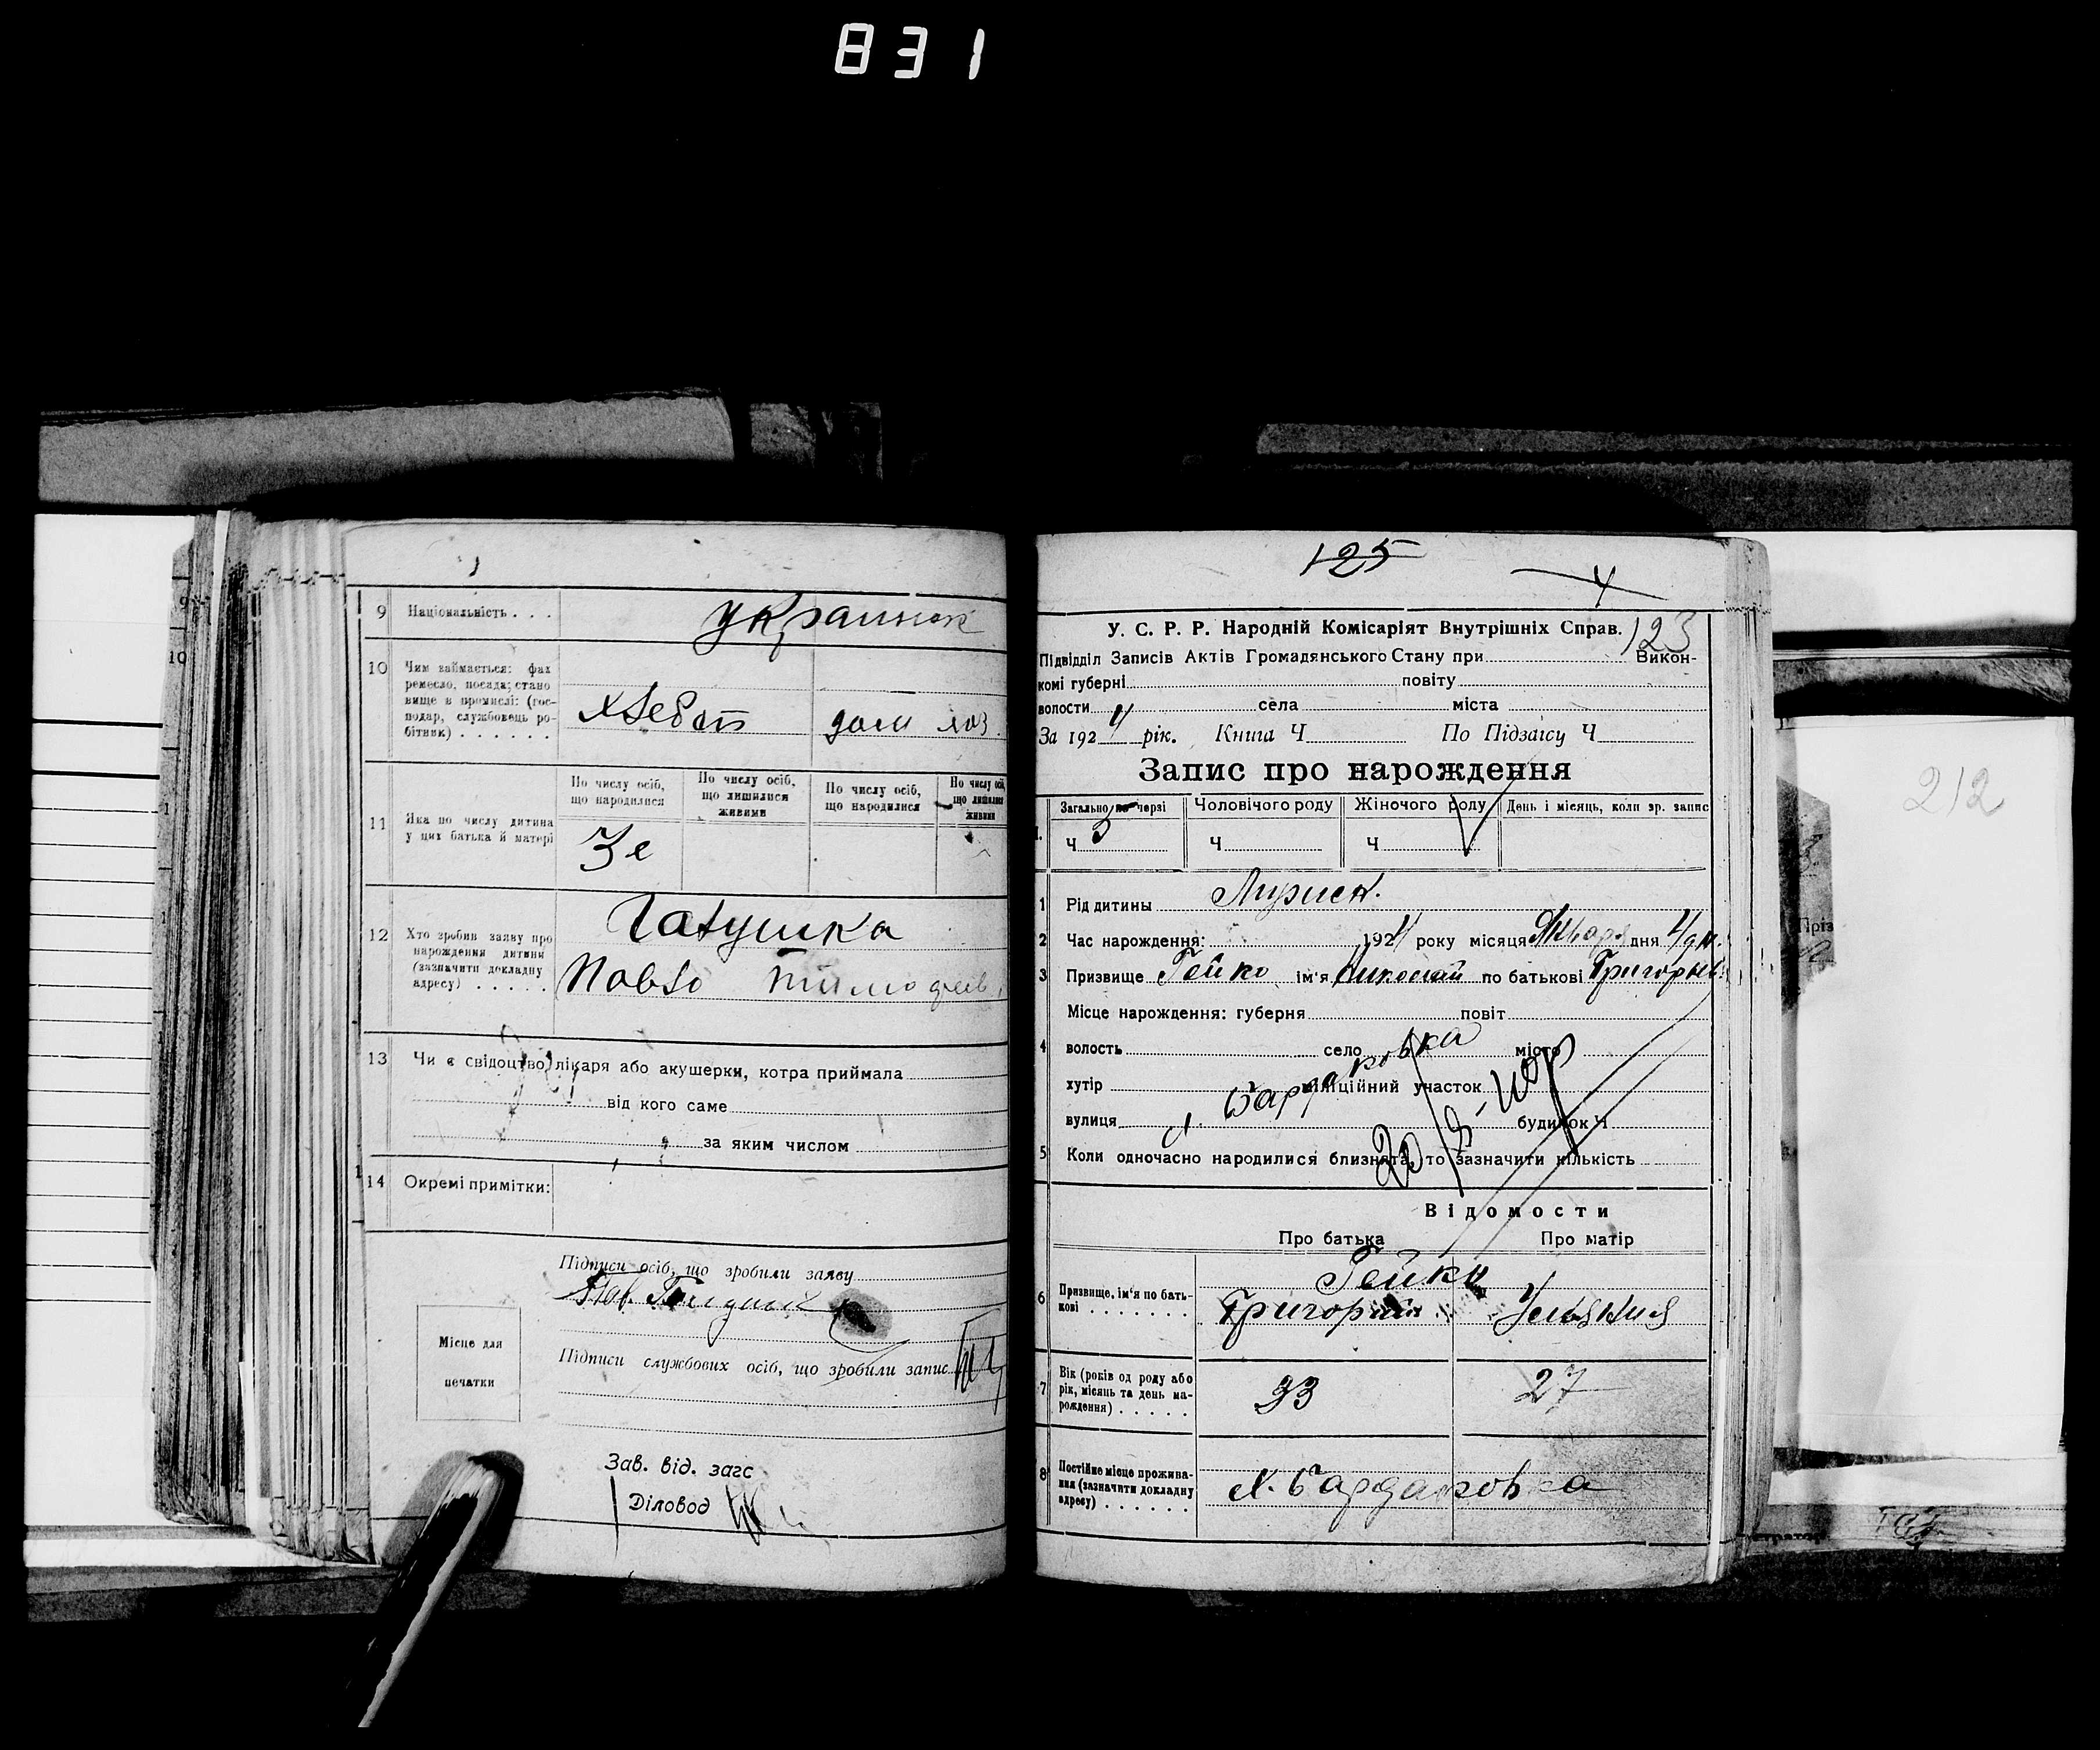 831
9 Національність . . .
украинск
10 Чим займається: фах
ремесло, посада; стано
вище в промислі: (гос-
подар, службовець ро-
бітник) . . . . . .
хлебоп дом хоз.
11 Яка по числу дитина
у цих батька й матері
По числу осіб,
що народилися
По числу осіб,
що лишилися
живими
По числу осіб,
що народилися
По числу осіб
що лишилися
живими
3е
12 Хто зробив заяву про
нарождення дитини
(зазначити докладну
адресу) . . . . .
Галушка
Павло
13 Чи є свідоцтво лікаря або акушерки, котра приймала
від кого саме
за яким числом
14 Окремі примітки:
Підписи осіб, що зробили заяву
Підписи службових осіб, що зробили запис
Місце для
печатки
Зав. від. загс
Діловод
125
123
У. С. Р. Р. Народній Комісаріят Внутрішніх Справ.
Підвідділ Записів Актів Громадянського Стану при Викон-
комі губерні повіту
волости села міста
За 1924 рік. Книга Ч По Підзапису Ч
Запис про нарождення
Загально по черзі Чоловічого роду Жіночого роду День і місяць, коли зр. запис
Ч 5 Ч Ч
1 Рід дитини
2 Час нарождення: 1924 року місяця Января дня 4
3 Призвище Гейко ім'я Николай по батькові Григорьев.
Місце нарождення: губерня повіт
4 волость село місто
хутір міліційний участок
вулиця х. Бардаковка будинок Ч
5 Коли одночасно народилися близнята, то зазначити кількість
Відомости
Про батька Про матір
6 Призвище, ім'я по бать-
кові . . . . . . .
Гейко
Григорий Ульяния
7 Вік (років од роду або
рік, місяць та день на-
рождення) . . . . .
33 27
8 Постійне місце прожива-
ння (зазначити докладну
адресу) . . . . . .
х. Бардаковка
212